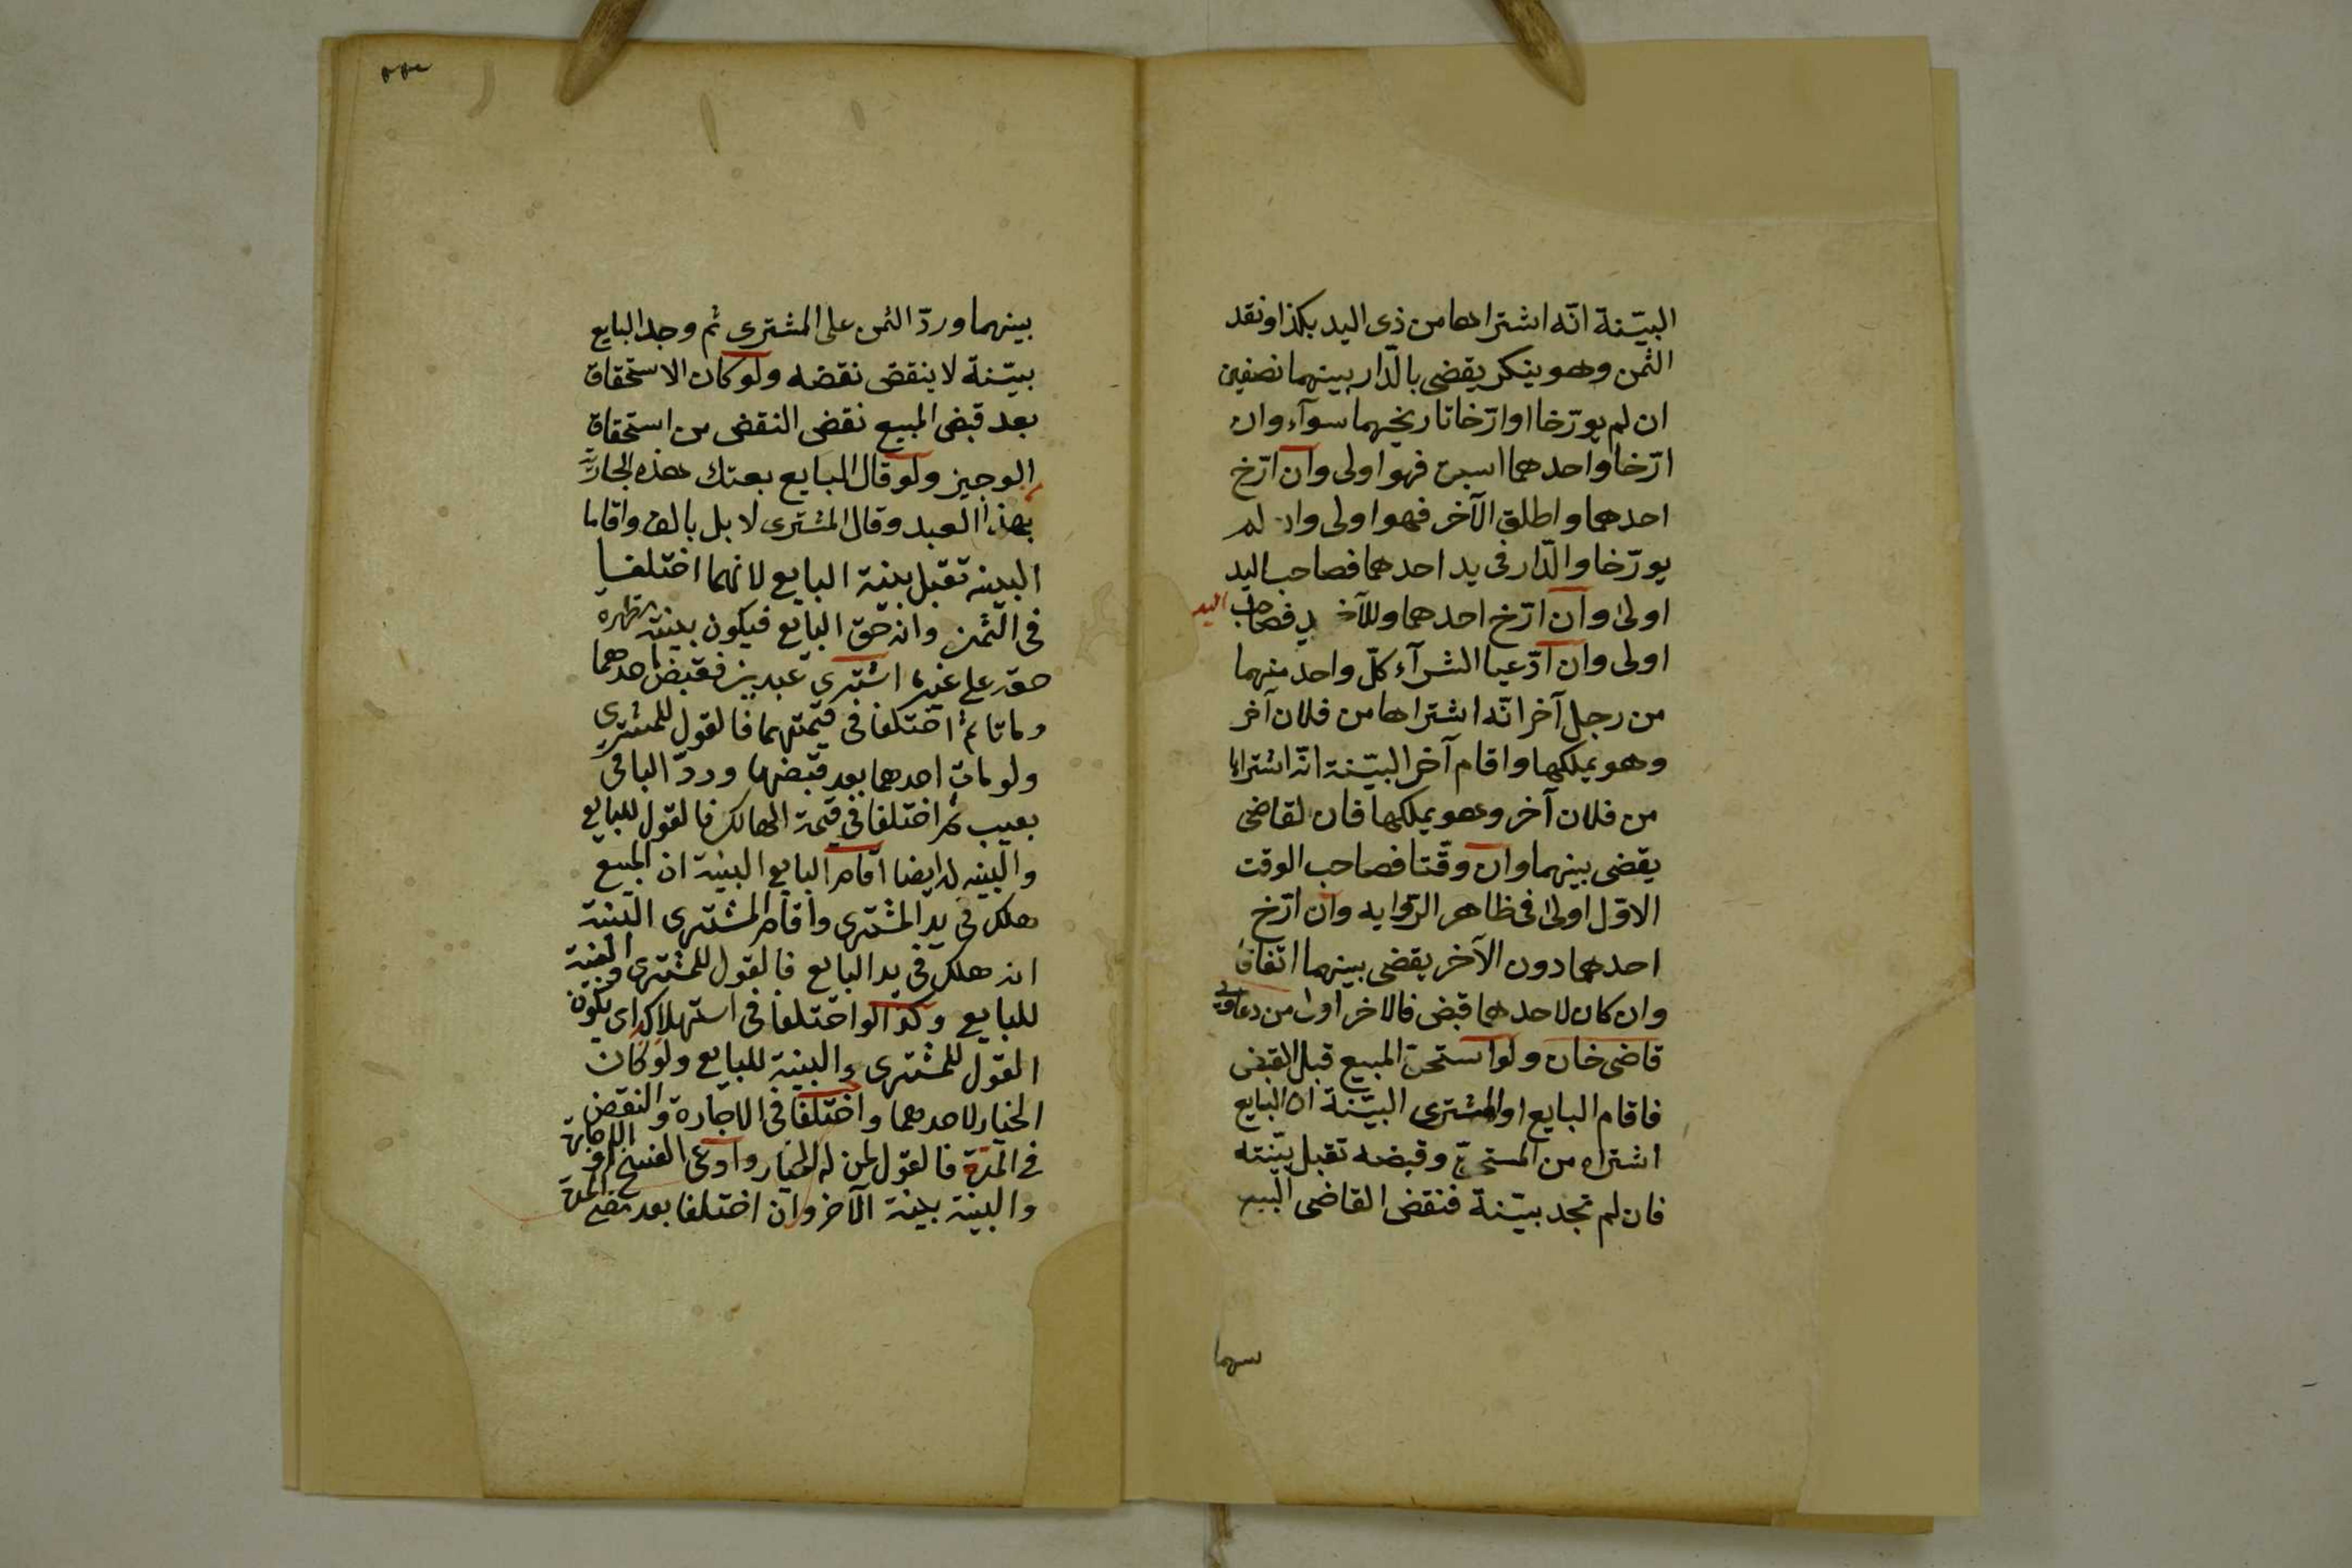 البيّنة انّه اشتراها من ذى اليد بكذا ونقد
الثمن وهو ينكر يقضى بالدّار بينهما نصفين
ان لم يورّخا او ارّخا تاريخهما سوآء وان
ارّخا واحدهما اسبق فهو اولى وان ارّخ
احدهما واطلق الآخر فهو اولى وان لم
يورّخا والدّار فى يد احدهما فصاحب اليد
اولى وان ارّخ احدهما وللآخر يد فصاحب اليد
اولى وان ادّعيا الشرآء كلّ واحد منهما
من رجل آخر انّه اشتراها من فلان آخر
وهو يملكها واقام آخر البيّنة انّه اشتراها
من فلان آخر وهو يملكها فان القاضى
يقضى بينهما وان وقّتا فصاحب الوقت
الاوّل اولى فى ظاهر الرّوايه وان ارّخ
احدهما دون الآخر يقضى بينهما اتفاقا
وان كان لاحدهما قبض فالاخر اولى من دعاوى
قاضى خان ولو استحق المبيع قبل القبض
فاقام البايع او المشترى البيّنة ان البايع
اشتراه من المستحقّ وقبضه تقبل بيّنته
فان لم تجد بيّنة فنقض القاضى البيع
بينهما
بينهما وردّ الثمن على المشترى ثم وجد البايع
بيّنة لا ينقض نقضه ولو كان الاستحقاق
بعد قبض المبيع نقض النقض من استحقاق
الوجيز ولو قال البايع بعتك هذه الجارية
بهذا العبد وقال المشترى لا بل بالف واقاما
البينه تقبل بينة البايع لانهما اختلفا
فى الثمن وانه حق البايع فيكون بينته مظهره
حقه على غيره اشترى عبدين فقبض احدهما
وماتا ثم اختلفا فى قيمتهما فالقول للمشترى
ولو مات احدهما بعد قبضهما وردّ الباقى
بعيب ثم اختلفا فى قيمة الهالك فالقول للبايع
والبينه له ايضا اقام البايع البينة ان المبيع
هلك فى يد المشترى واقام المشترى البينة
انه هلك فى يد البايع فالقول للمشترى والبينة
للبايع وكذا لو اختلفا فى استهلاكه اى يكون
القول للمشترى والبينة للبايع ولو كان
الخيار لاحدهما واختلفا فى الاجازة والنقض
فى المدة فالقول لمن له الخيار وادعى الفسخ او الاجازة
والبينة بينة الآخر وان اختلفا بعد مضى المدة